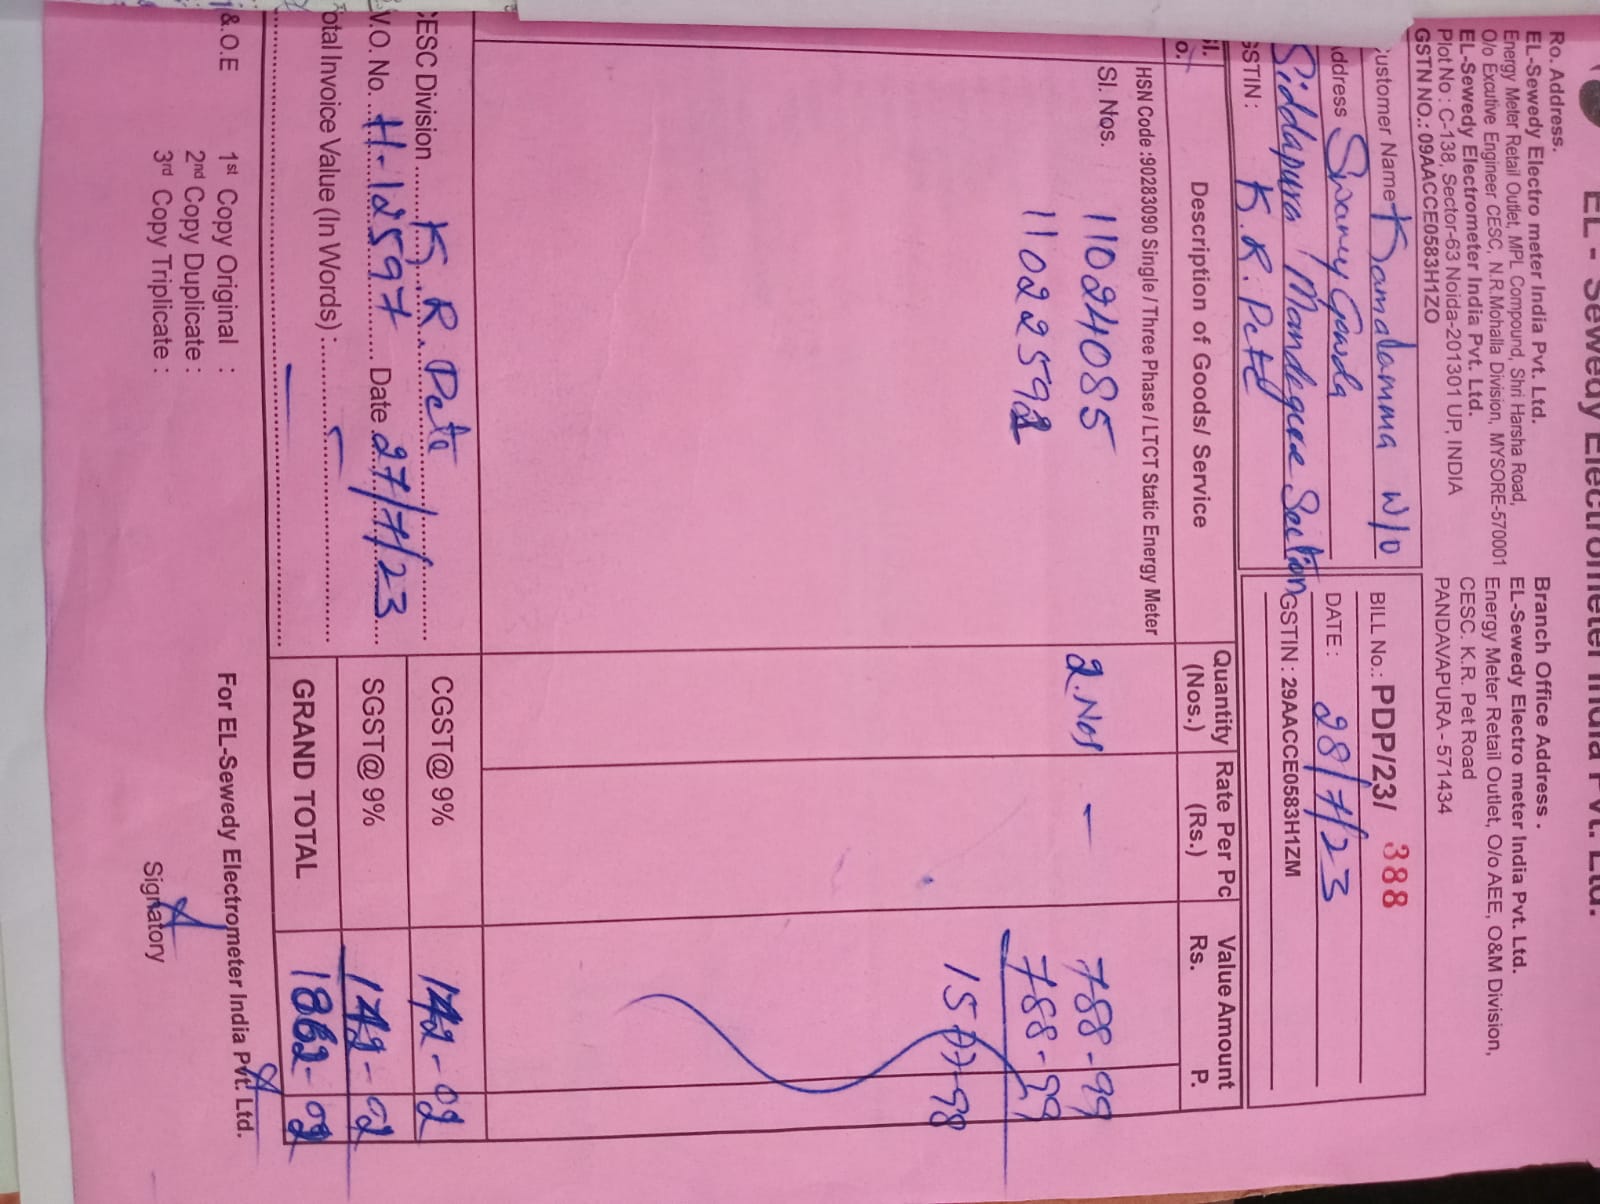 EL - Sewedy Electrometer India Pvt. Ltd.
Ro. Address.
EL-Sewedy Electro meter India Pvt. Ltd.
Energy Meter Retail Outlet, MPL Compound, Shri Harsha Road,
O/o Excutive Engineer CESC, N.R.Mohalla Division, MYSORE-570001
EL-Sewedy Electrometer India Pvt. Ltd.
Plot No : C-138, Sector-63 Noida-201301 UP, INDIA
GSTN NO.: 09AACCE0583H1ZO
Branch Office Address .
EL-Sewedy Electro meter India Pvt. Ltd.
Energy Meter Retail Outlet, O/o AEE, O&M Division,
CESC. K.R. Pet Road
PANDAVAPURA - 571434
ustomer Name Kamalamma W/o
ddress Swamy Gowda
Siddapura Mandagere Section
STIN : K. R. Pete
BILL No.: PDP/23/ 388
DATE : 28/7/23
GSTIN : 29AACCE0583H1ZM
Sl. Description of Goods/ Service Quantity (Nos.) Rate Per Pc (Rs.) Value Amount Rs. P.
HSN Code :90283090 Single / Three Phase / LTCT Static Energy Meter
Sl. Nos. 11024085 2.Nos - 788-99
11022592 788-99
1577-98
CESC Division K. R. Pete CGST@9% 142-02
W.O. No. H-12597 Date 27/7/23 SGST@9% 142-02
otal Invoice Value (In Words) : GRAND TOTAL 1862-02
&.O.E
1st Copy Original :
2nd Copy Duplicate :
3rd Copy Triplicate :
For EL-Sewedy Electrometer India Pvt. Ltd.
Signatory